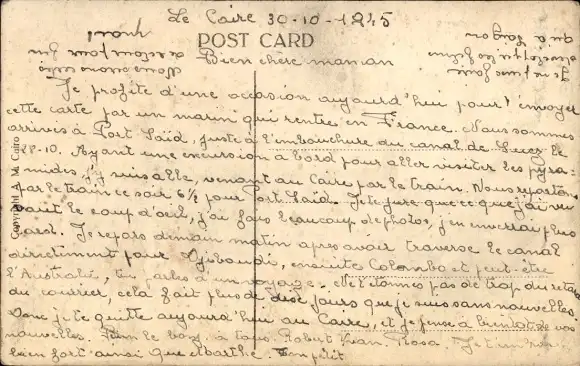 Le Caire 30-10-1945
POST CARD
Bien chère maman
Je profite d'une occasion aujourd'hui pour t'envoyer
cette carte par un marin qui rentre en France. Nous sommes
arrivés à Port Saïd, juste à l'embouchure du canal de Suez le
28-10. Ayant une excursion à bord pour aller visiter les pyra-
mides, j'y suis allé, venant au Caire par le train. Nous repartons
par le train ce soir 6½ pour Port Saïd. Je te jure que ce que j'ai vu
vaut le coup d'oeil, j'ai fais beaucoup de photos, j'en enverrai plus
tard. Je repars demain matin après avoir traversé le canal
directement pour Djibouti, ensuite Colombo et peut-être
l'Australie, tu parles d'un voyage. Ne t'étonnes pas de trop du retard
du courrier, cela fait plus de dix jours que je suis sans nouvelles
Donc je te quitte aujourd'hui au Caire, et je pense à bientôt de vos
nouvelles. Bien le bonj à tous. Robert Jean Rosa. Je t'
bien fort ainsi que Marthe. Ton petit
Copyright A. M. Cairo